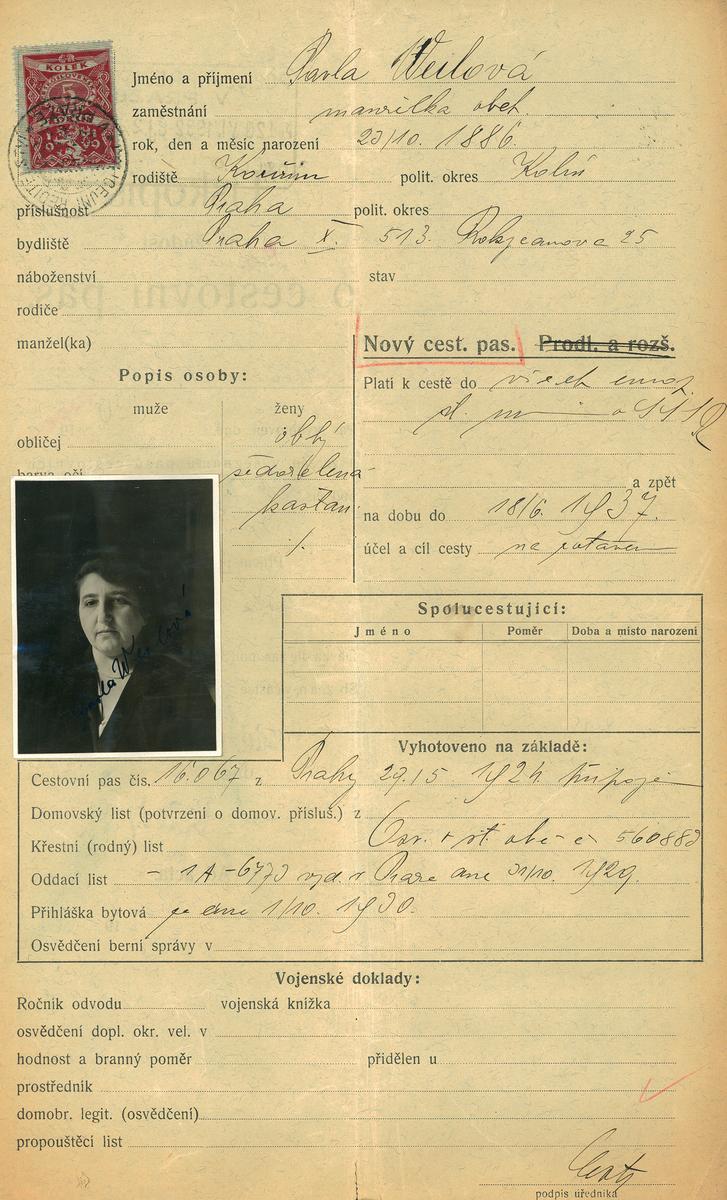 KOLEK
5
Jméno a příjmení Pavla Weilová
zaměstnání manželka obch.
rok, den a měsíc narození 23/10. 1886.
rodiště Kouřim polit. okres Kolín
příslušnost Praha polit. okres
bydliště Praha X. 513. Rokycanova 25
náboženství stav
rodiče
manžel(ka)
Nový cest. pas. Prodl. a rozš.
Popis osoby:
Platí k cestě do všech evrop.
muže ženy
st.
obličej oblý
barva očí šedozelená
kaštan.
a zpět
na dobu do 18/6. 1937.
účel a cíl cesty na zotavenou
Pavla Weilová
Spolucestující:
Jméno Poměr Doba a místo narození
Vyhotoveno na základě:
Cestovní pas čís. 16.067 z Prahy 29.15 1924. připoje
Domovský list (potvrzení o domov. přísluš.) z
Křestní (rodný) list Osv. o st. obč. č. 560883
Oddací list - 1A-6773 vyd. v Praze dne 31/10. 1929.
Přihláška bytová ze dne 1/10. 1930.
Osvědčení berní správy v
Vojenské doklady:
Ročník odvodu vojenská knížka
osvědčení dopl. okr. vel. v
hodnost a branný poměr přidělen u
prostředník
domobr. legit. (osvědčení)
propouštěcí list
podpis úředníka